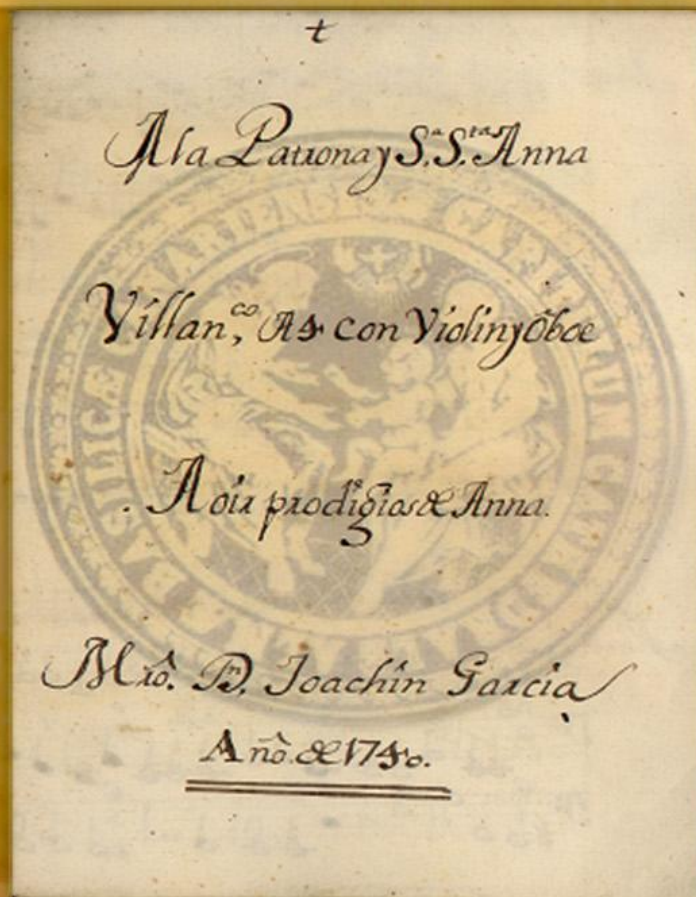 †
A la Patrona y S.ª S.ᵗᵃ Anna
Villan.ᶜᵒ A 4 con Violin y Oboe
A oir prodigios de Anna.
Mrô. Dⁿ. Joachîn Garcia
Año. de 1740.
BASILICÆ